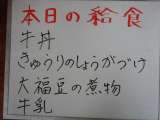 本日の給食
牛丼
きゅうりのしょうがづけ
大福豆の煮物
牛乳